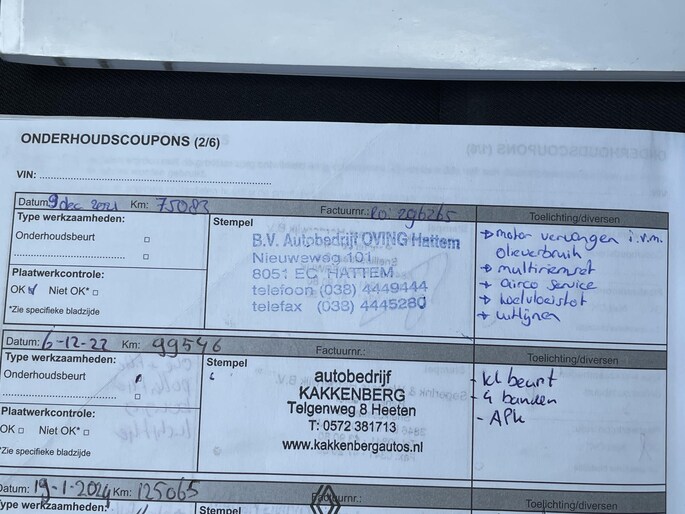 ONDERHOUDSCOUPONS (2/6)
VIN:
Datum: 9 dec 2021 Km: 75083 Factuurnr.: Ro: 296265 Toelichting/diversen
Type werkzaamheden:
Onderhoudsbeurt
Plaatwerkcontrole:
OK Niet OK*
*Zie specifieke bladzijde
Stempel
B.V. Autobedrijf OVING Hattem
Nieuweweg 101
8051 EC HATTEM
telefoon (038) 4449444
telefax (038) 4445280
→ motor vervangen i.v.m.
olieverbruik
→ multiriemset
→ airco service
→ koelvloeistof
→ uitlijnen
Datum: 6-12-22 Km: 99546 Factuurnr.: Toelichting/diversen
Type werkzaamheden:
Onderhoudsbeurt
Plaatwerkcontrole:
OK Niet OK*
*Zie specifieke bladzijde
Stempel
autobedrijf
KAKKENBERG
Telgenweg 8 Heeten
T: 0572 381713
www.kakkenbergautos.nl
- kl beurt
- 4 banden
- APK
Datum: 19-1-2024 Km: 125065 Factuurnr.: Toelichting/diversen
Type werkzaamheden:
Stempel